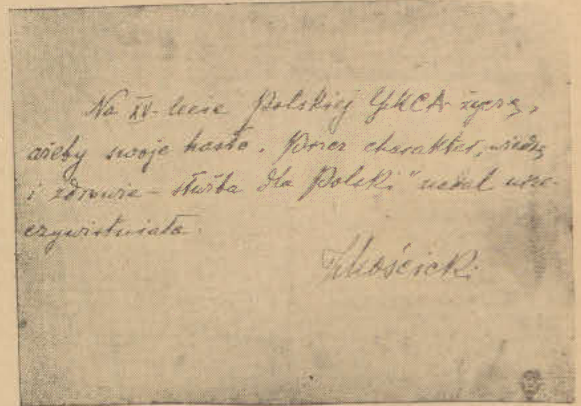 Na XV-lecie Polskiej YMCA życzę,
ażeby swoje hasło „Przez charakter, wiedzę
i zdrowie – służba dla Polski" nadal urze-
czywistniała.
I Mościcki